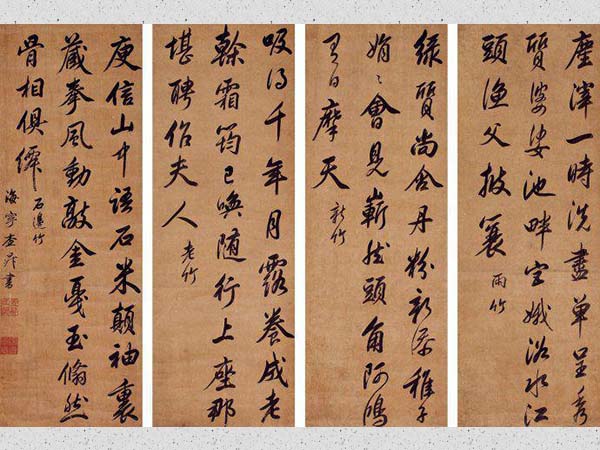 塵滓一時洗盡單呈秀
質婆娑池畔宓娥浴水江
頭漁父披蓑 雨竹
綠質尚含丹粉新添稚子
娟娟會見嶄然頭角阿鴻
有日摩天 新竹
吸得千年月露養成老
榦霜筠已喚隨行上座那
堪聘作夫人 老竹
庾信山中語石米顛袖裏
藏拳風動敲金戛玉翛然
骨相俱僊 石邊竹
海寧查昇書